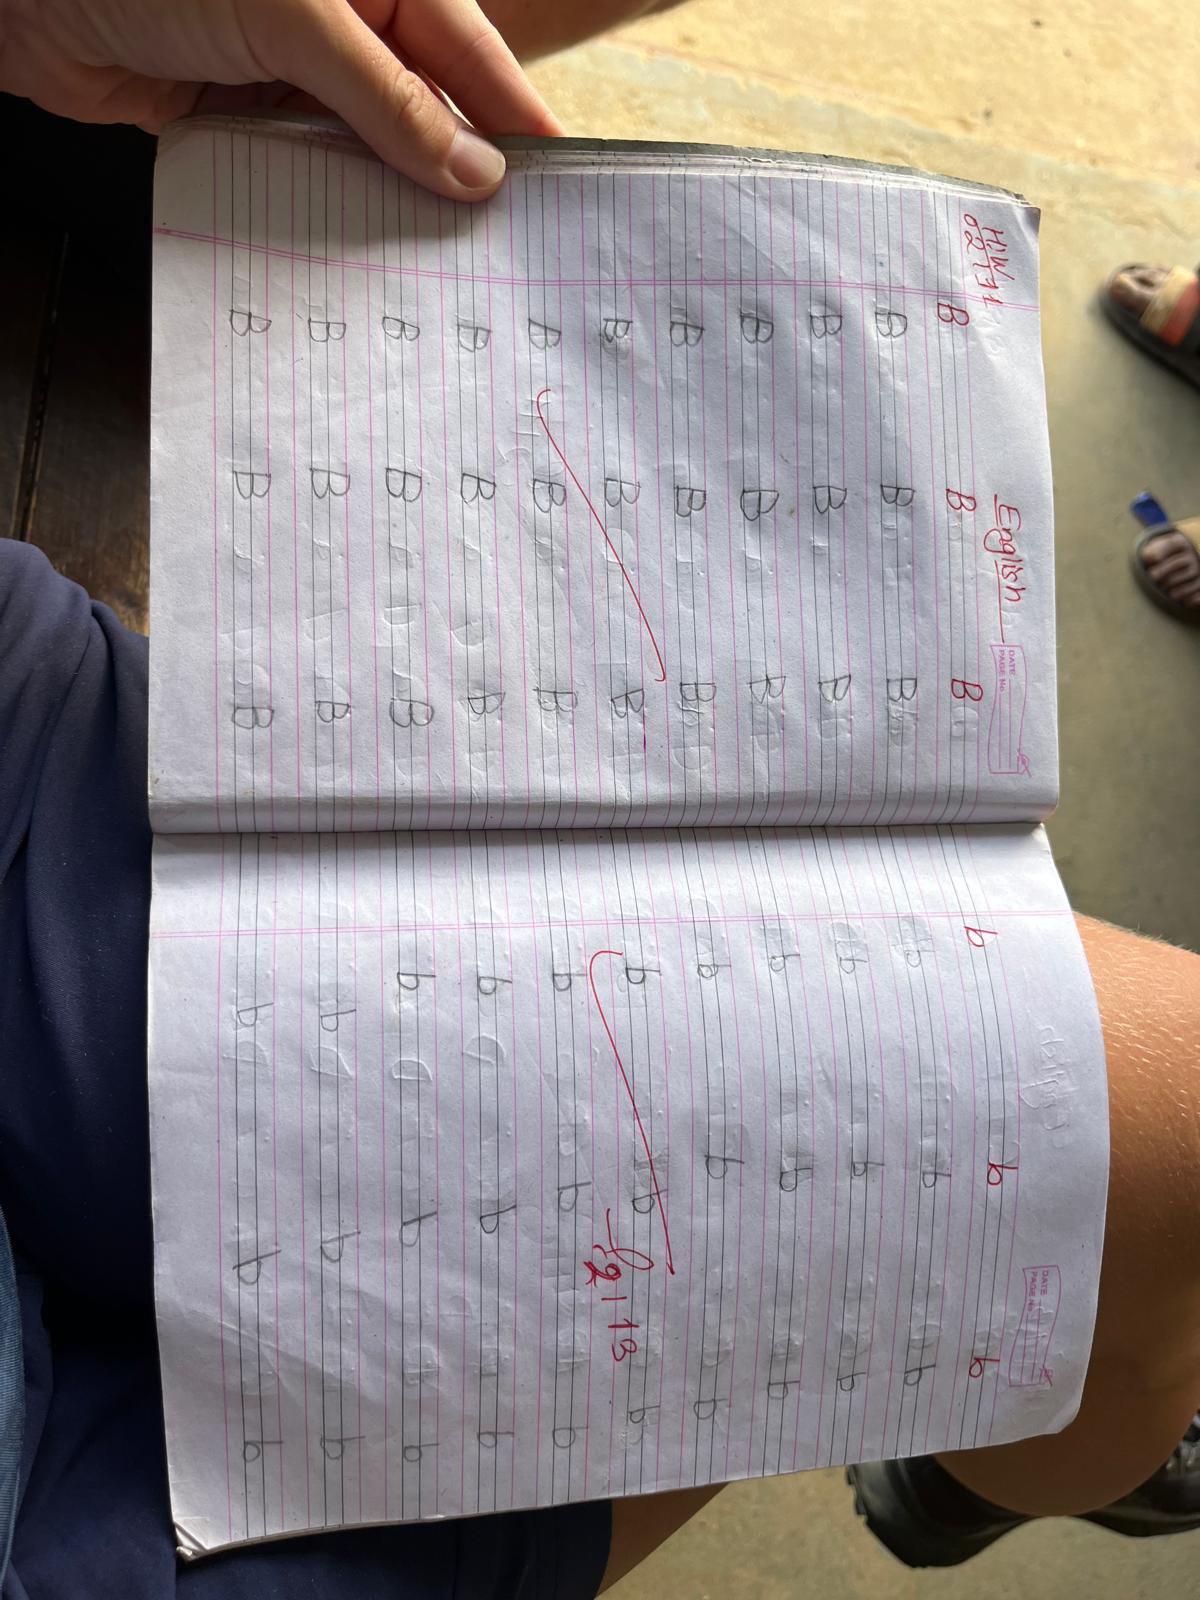 H.W English DATE
02/11 PAGE No
B B B
B B B
B B B
B B B
B B B
B B B
B B B
B B B
B B B
B B B
B B B
DATE
PAGE No
b b b
b b b
b b b
b b b
b b b
b b b
2/13
b b b
b b b
b b b
b b b
b b b